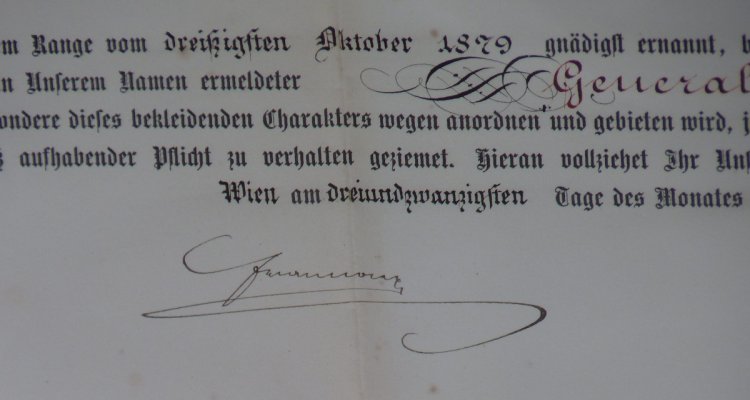 m Range vom dreißigsten Oktober 1879 gnädigst ernannt, b
n Unserem Namen ermeldeter General
ondere dieses bekleidenden Charakters wegen anordnen und gebieten wird, j
z aufhabender Pflicht zu verhalten geziemet. Hieran vollziehet Ihr Uns
Wien am dreiundzwanzigsten Tage des Monates